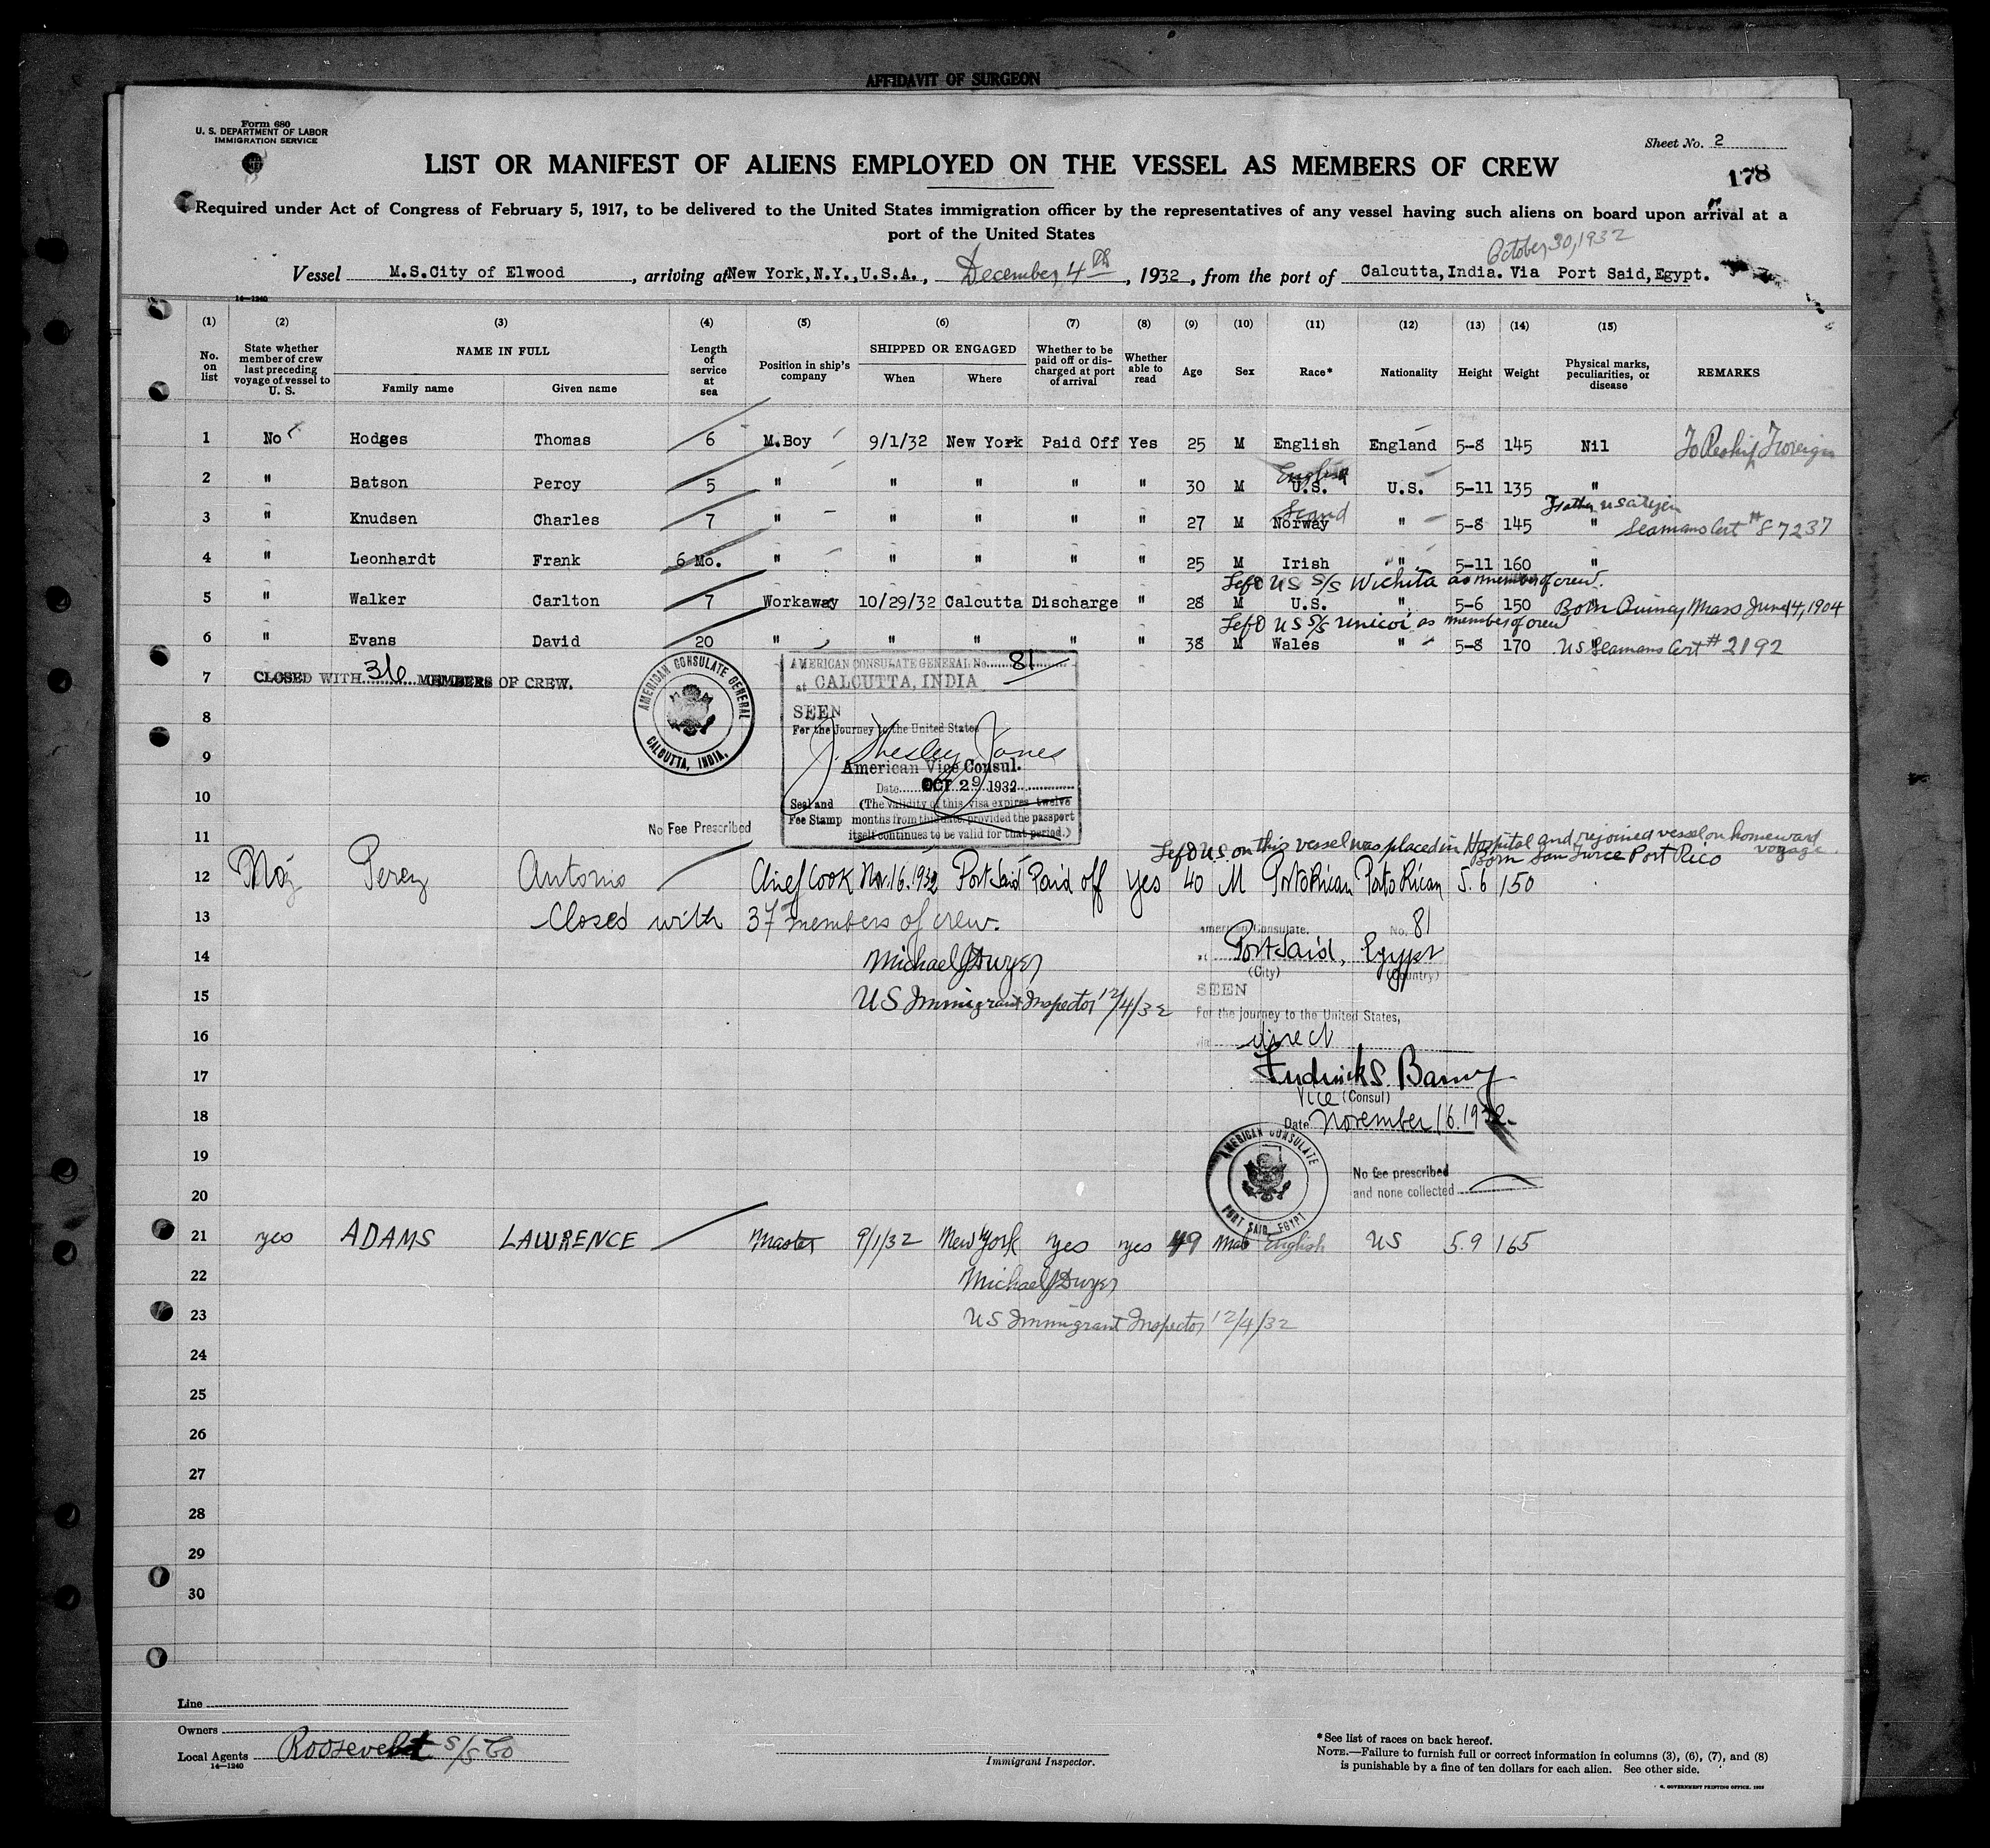 AFFIDAVIT OF SURGEON
Form 680
U. S. DEPARTMENT OF LABOR
IMMIGRATION SERVICE
Sheet No. 2
178
LIST OR MANIFEST OF ALIENS EMPLOYED ON THE VESSEL AS MEMBERS OF CREW
Required under Act of Congress of February 5, 1917, to be delivered to the United States immigration officer by the representatives of any vessel having such aliens on board upon arrival at a
port of the United States
October 30, 1932
Vessel M.S.City of Elwood, arriving at New York,N.Y.,U.S.A., December 4th, 1932, from the port of Calcutta,India. Via Port Said,Egypt.
14—1240
(1) (2) (3) (4) (5) (6) (7) (8) (9) (10) (11) (12) (13) (14) (15)
No. on list
State whether member of crew last preceding voyage of vessel to U. S.
NAME IN FULL
Family name Given name
Length of service at sea
Position in ship's company
SHIPPED OR ENGAGED
When Where
Whether to be paid off or discharged at port of arrival
Whether able to read
Age Sex Race* Nationality Height Weight
Physical marks, peculiarities, or disease
REMARKS
1 No Hodges Thomas 6 M.Boy 9/1/32 New York Paid Off Yes 25 M English England 5-8 145 Nil To Reship Foreign
English
2 " Batson Percy 5 " " " " " 30 M U.S. U.S. 5-11 135 "
Scand Father US citizen
3 " Knudsen Charles 7 " " " " " 27 M Norway " 5-8 145 " Seamans Cert # 87237
4 " Leonhardt Frank 6 Mo. " " " " " 25 M Irish " 5-11 160 "
Left US S/S Wichita as member of crew.
5 " Walker Carlton 7 Workaway 10/29/32 Calcutta Discharge " 28 M U.S. " 5-6 150 " Born Quincy Mass June 14, 1904
Left US S/S Unicoi as member of crew
6 " Evans David 20 " " " " " 38 M Wales " 5-8 170 " US Seamans Cert # 2192
7 CLOSED WITH 36 MEMBERS OF CREW.
AMERICAN CONSULATE GENERAL
CALCUTTA, INDIA.
AMERICAN CONSULATE GENERAL No. 81
at CALCUTTA, INDIA
SEEN
For the Journey to the United States
J. Jones
American Vice Consul.
Date OCT 29 1932
Seal and Fee Stamp
(The validity of this visa expires twelve
months from this date, provided the passport
itself continues to be valid for that period.)
No Fee Prescribed
8
9
10
11
Left U.S. on this vessel was placed in Hospital and rejoined vessel on homeward voyage.
Born San Turce Port Rico
12 No Perez Antonio Chief Cook Nov.16.1932 Port Said Paid off yes 40 M PortoRican PortoRican 5.6 150
13 Closed with 37 members of crew.
14 Michael J Dwyer
15 US Immigrant Inspector 12/4/32
American Consulate. No. 81
at Port Said, Egypt
(City) (Country)
SEEN
For the journey to the United States,
via direct
16
17
Fredrick S.
Vice (Consul)
18
Date November 16.1932.
AMERICAN CONSULATE
PORT SAID, EGYPT
No fee prescribed
and none collected
19
20
21 yes ADAMS LAWRENCE Master 9/1/32 New York yes yes 49 Male English US 5.9 165
22 Michael J Dwyer
23 US Immigrant Inspector 12/4/32
24
25
26
27
28
29
30
Line
Owners
Local Agents Roosevelt S/S Co
14—1240
Immigrant Inspector.
*See list of races on back hereof.
NOTE.—Failure to furnish full or correct information in columns (3), (6), (7), and (8)
is punishable by a fine of ten dollars for each alien. See other side.
GOVERNMENT PRINTING OFFICE